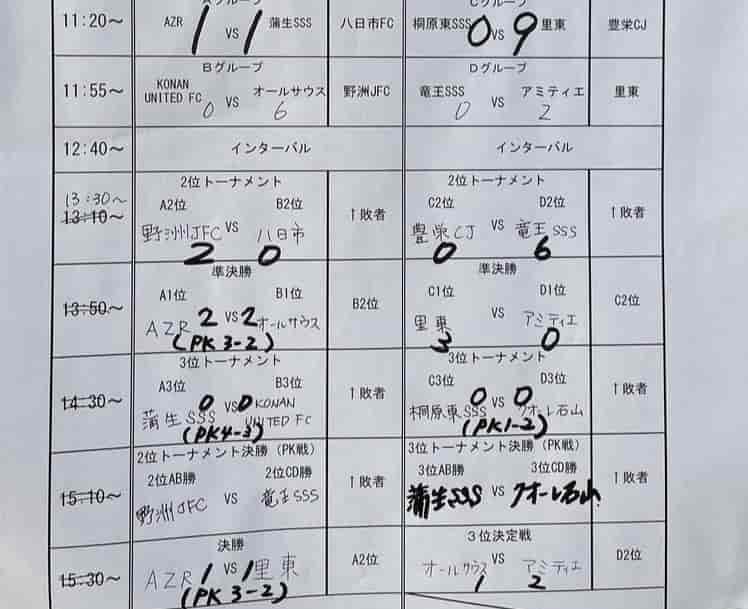 Aグループ Cグループ
11:20～ AZR 1 VS 1 蒲生SSS 八日市FC 桐原東SSS 0 VS 9 里東 豊栄CJ
Bグループ Dグループ
11:55～ KONAN UNITED FC 0 VS オールサウス 6 野洲JFC 竜王SSS 0 VS アミティエ 2 里東
12:40～ インターバル インターバル
2位トーナメント 2位トーナメント
13:30～
13:10～ A2位 B2位 1敗者 C2位 D2位 1敗者
野洲JFC VS 八日市 豊栄CJ VS 竜王SSS
2 0 0 6
準決勝 準決勝
13:50～ A1位 B1位 B2位 C1位 D1位 C2位
AZR 2 VS 2 オールサウス 里東 VS アミティエ
(PK 3-2) 3 0
3位トーナメント 3位トーナメント
14:30～ A3位 B3位 1敗者 C3位 D3位 1敗者
蒲生SSS 0 VS 0 KONAN UNITED FC 桐原東SSS 0 VS 0 クオーレ石山
(PK4-3) (PK1-2)
2位トーナメント決勝（PK戦） 3位トーナメント決勝（PK戦）
15:10～ 2位AB勝 2位CD勝 1敗者 3位AB勝 3位CD勝 1敗者
野洲JFC VS 竜王SSS 蒲生SSS VS クオーレ石山
決勝 3位決定戦
15:30～ AZR 1 VS 1 里東 A2位 オールサウス VS アミティエ D2位
(PK 3-2) 1 2